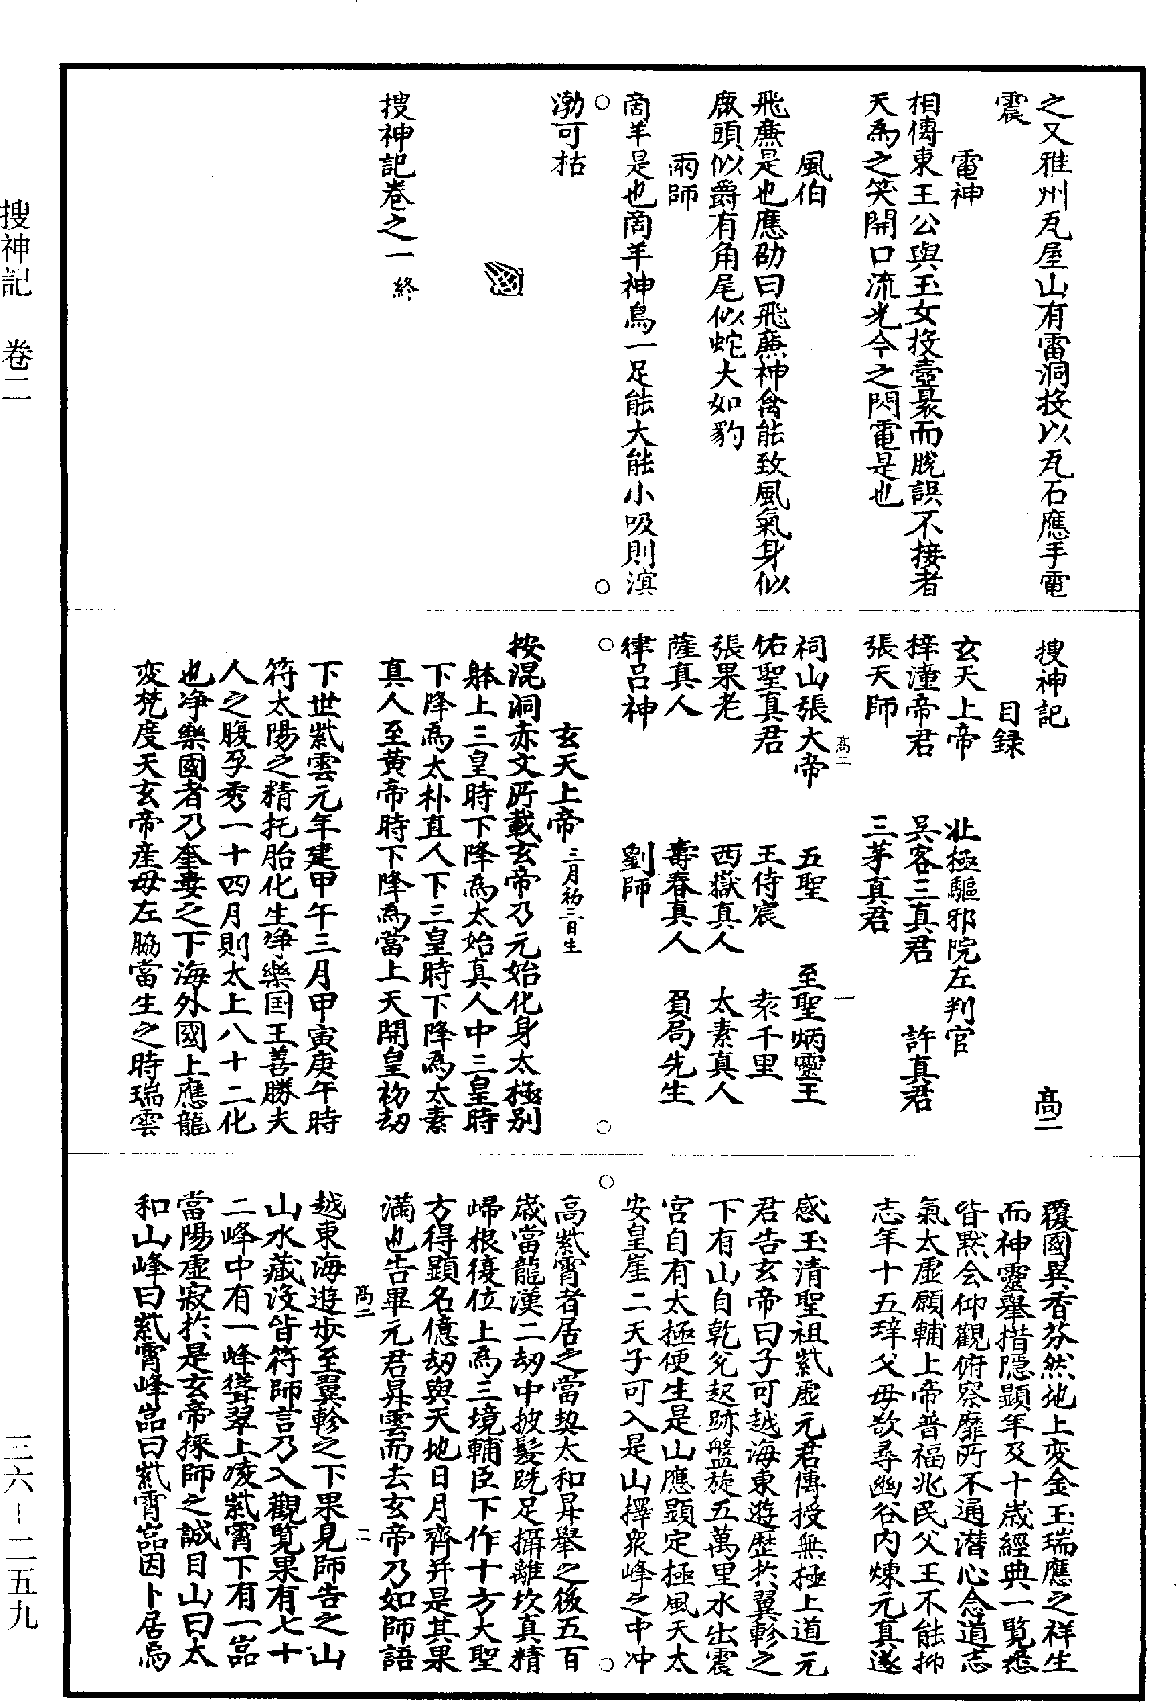 之又雅州瓦屋山有雷洞投以瓦石應手電
震
電神
相傳東王公與玉女投壺梟而脫誤不接者
天為之笑開口流光今之閃電是也
風伯
飛廉是也應劭曰飛廉神禽能致風氣身似
鹿頭似爵有角尾似蛇大如豹
雨師
商羊是也商羊神鳥一足能大能小吸則溟
渤可枯
搜神記卷之一 終
搜神記 高二
目録
玄天上帝 北極驅邪院左判官
梓潼帝君 吳客三真君 許真君
張天師 三茅真君
高二 一
祠山張大帝 五聖 至聖炳靈王
佑聖真君 王侍宸 袁千里
張果老 西嶽真人 太素真人
薩真人 壽春真人 負局先生
律呂神 劉師
玄天上帝 三月初三日生
按混洞赤文所載玄帝乃元始化身太極别
躰上三皇時下降為太始真人中三皇時
下降為太朴真人下三皇時下降為太素
真人至黄帝時下降為當上天開皇初劫
下世紫雲元年建甲午三月甲寅庚午時
符太陽之精托胎化生浄樂国王善勝夫
人之腹孕秀一十四月則太上八十二化
也浄樂國者乃奎婁之下海外國上應龍
変梵度天玄帝産母左脇當生之時瑞雲
覆國異香芬然地上変金玉瑞應之祥生
而神靈舉措隱顯年及十歲經典一覽悉
皆黙会仰觀俯察靡所不通潜心念道志
氣太虚願輔上帝普福兆民父王不能抑
志年十五辝父母欲尋幽谷内煉元真遂
感玉清聖祖紫虚元君傳授無極上道元
君告玄帝曰子可越海東遊歴於翼軫之
下有山自乾兊起跡盤旋五萬里水出震
宮自有太極便生是山應顯定極風天太
安皇崖二天子可入是山擇衆峰之中冲
高紫霄者居之當契太和昇舉之後五百
歲當龍漢二劫中披髮跣足攝離坎真精
歸根復位上為三境輔臣下作十方大聖
方得顯名億劫與天地日月齊并是其果
滿也告畢元君昇雲而去玄帝乃如師語
高二 二
越東海遊步至翼軫之下果見師告之山
山水藏没皆符師言乃入觀覧果有七十
二峰中有一峰聳翠上凌紫霄下有一嵓
當陽虚寂於是玄帝採師之誡目山曰太
和山峰曰紫霄峰嵓曰紫霄嵓因卜居焉
搜神記 卷二
三六–二五九